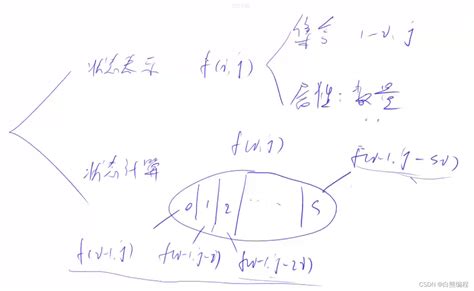 集合 1-i, j
状态表示 f(i,j)
属性: 数量
f(i,j)
f(i-1,j-sv)
状态计算
0 1 2 ... s
f(i-1,j) f(i-1,j-v) f(i-1,j-2v)
CSDN @白熊编程